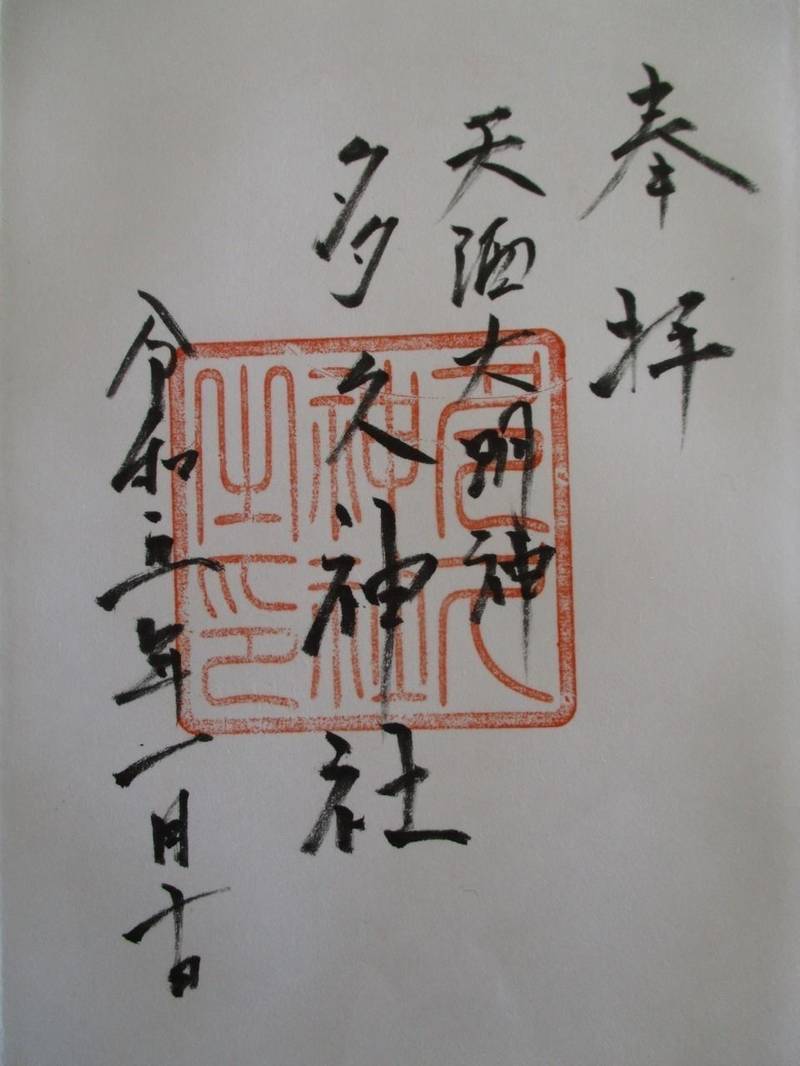 奉拝
天酒大明神
多久神社
令和五年一月十日
多久
神社
之印